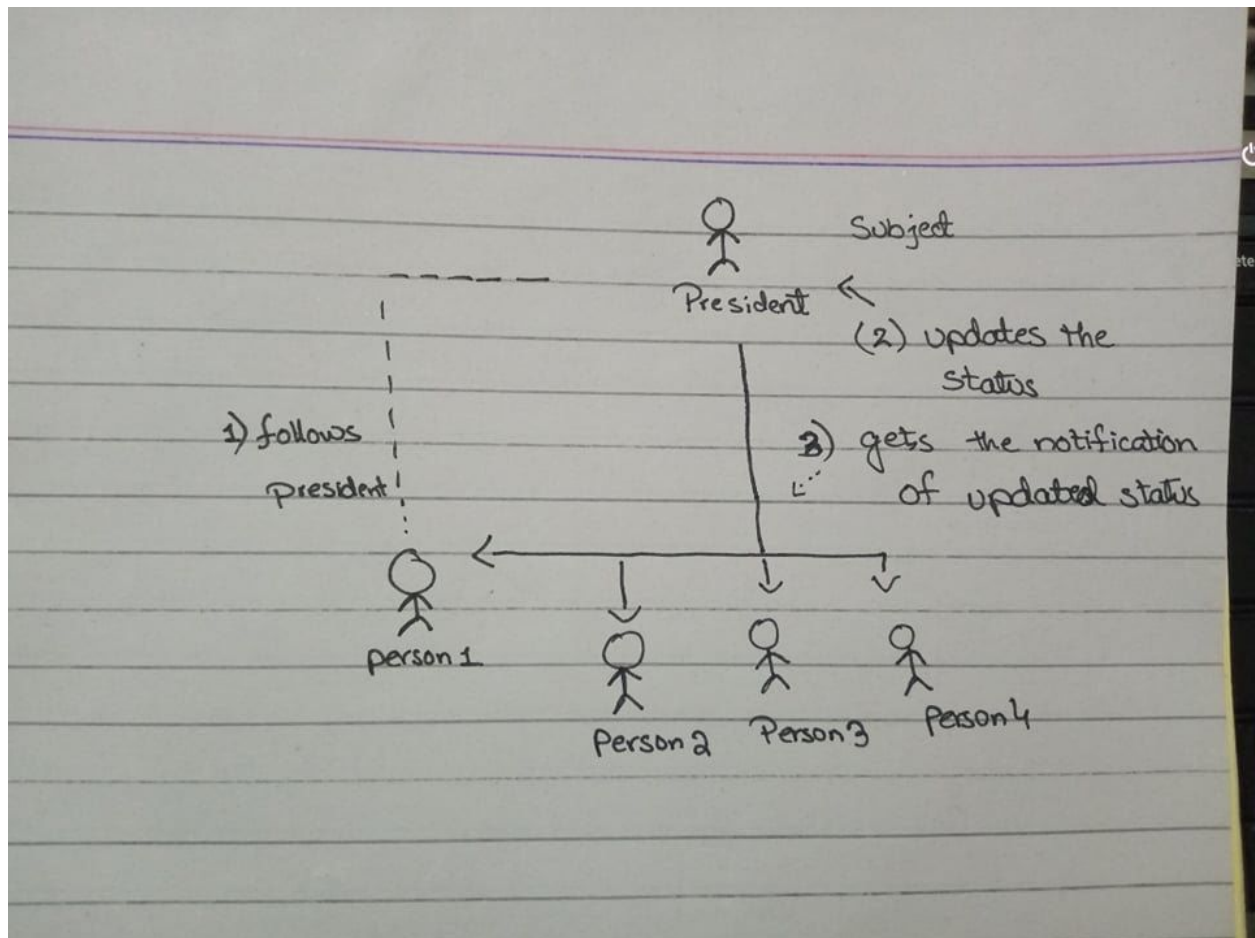 Subject
President
(2) updates the
status
1) follows
president
3) gets the notification
of updated status
person 1
Person 2
Person 3
Person 4
ete